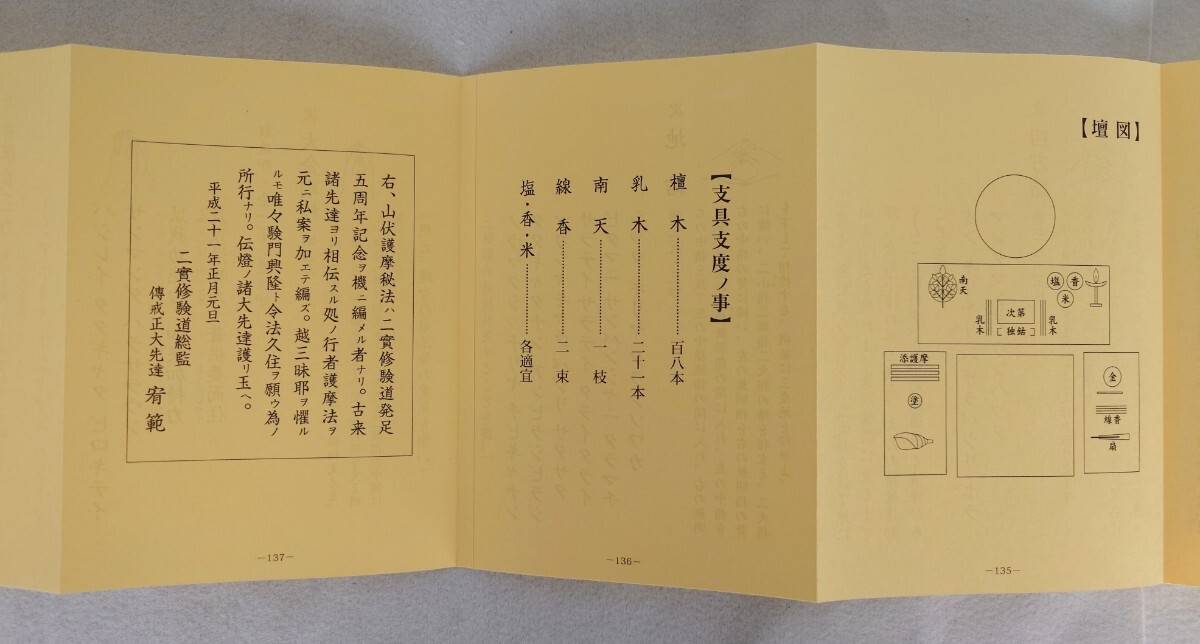 【壇図】
南天
塩
香
米
乳木
次第
独鈷
乳木
添護摩
塗
金
線香
扇
―135―
【支具支度ノ事】
檀木…………百八本
乳木…………二十一本
南天…………一枝
線香…………二束
塩・香・米…………各適宜
―136―
右、山伏護摩秘法ハ二實修験道発足
五周年記念ヲ機ニ編メル者ナリ。古来
諸先達ヨリ相伝スル処ノ行者護摩法ヲ
元ニ私案ヲ加エテ編ズ。越三昧耶ヲ懼ル
ルモ唯々験門興隆ト令法久住ヲ願ウ為ノ
所行ナリ。伝燈ノ諸大先達護リ玉ヘ。
平成二十一年正月元旦
二實修験道総監
傳戒正大先達 宥範
―137―